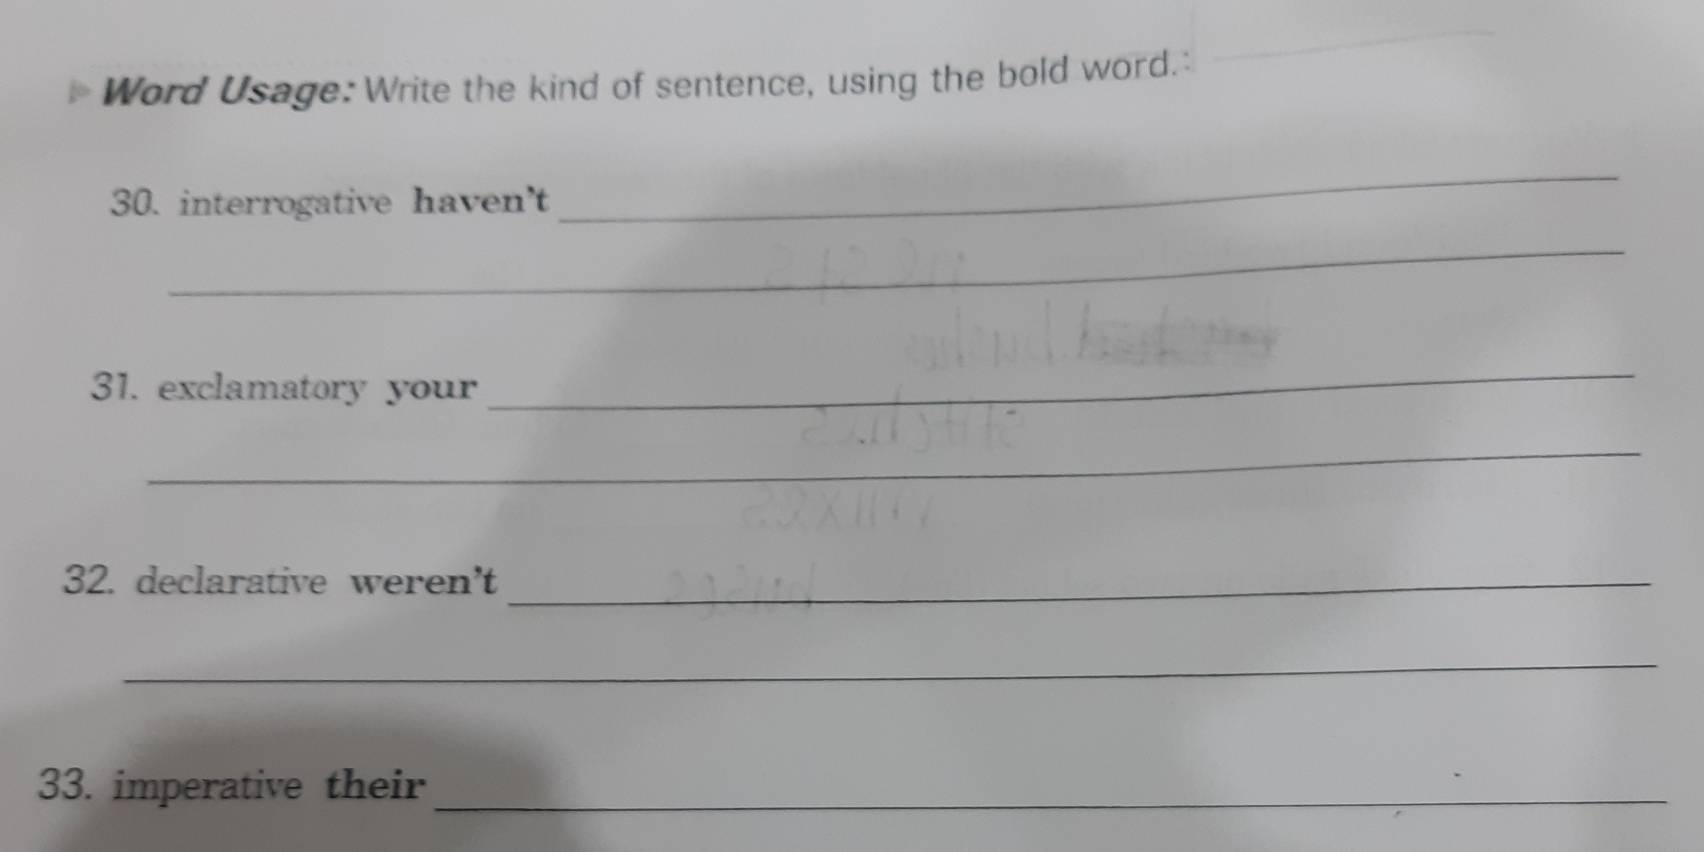 Word Usage: Write the kind of sentence, using the bold word.:
30. interrogative haven't
31. exclamatory your
32. declarative weren't
33. imperative their